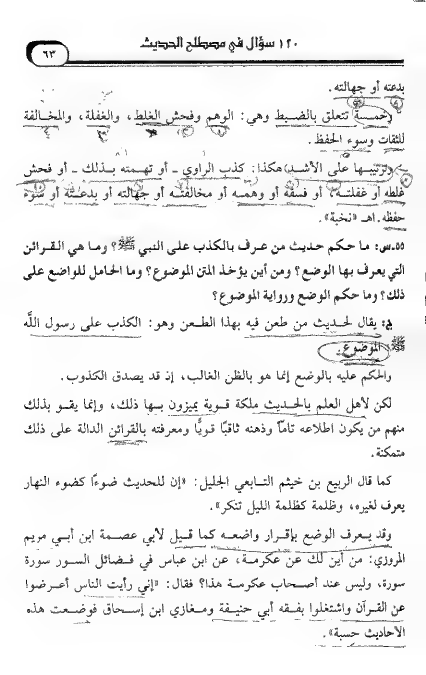 ١٢٠ سؤال في مصطلح الحديث
٦٣
بدعته أو جهالته.
وخمسة تتعلق بالضبط وهي: الوهم وفحش الغلط، والغفلة، والمخالفة
للثقات وسوء الحفظ.
وترتيبها على الأشد هكذا: كذب الراوي ـ أو تهمته بذلك ـ أو فحش
غلطه أو غفلته، أو فسقه أو وهمه أو مخالفته أو جهالته أو بدعته أو سوء
حفظه. اهـ «نخبة».
٥٥ـس: ما حكم حديث من عرف بالكذب على النبي ﷺ؟ وما هي القرائن
التي يعرف بها الوضع؟ ومن أين يؤخذ المتن الموضوع؟ وما الحامل للواضع على
ذلك؟ وما حكم الوضع ورواية الموضوع؟
ج: يقال لحديث من طعن فيه بهذا الطعن وهو: الكذب على رسول اللَّه
ﷺ الموضوع.
والحكم عليه بالوضع إنما هو بالظن الغالب، إذ قد يصدق الكذوب.
لكن لأهل العلم بالحديث ملكة قوية يميزون بها ذلك، وإنما يقو بذلك
منهم من يكون اطلاعه تامًّا وذهنه ثاقبًا قويًّا ومعرفته بالقرائن الدالة على ذلك
متمكنة.
كما قال الربيع بن خيثم التابعي الجليل: «إن للحديث ضوءًا كضوء النهار
يعرف لغيره، وظلمة كظلمة الليل تنكر».
وقد يعرف الوضع بإقرار واضعه كما قيل لأبي عصمة ابن أبي مريم
المروزي: من أين لك عن عكرمة، عن ابن عباس في فضائل السور سورة
سورة، وليس عند أصحاب عكرمة هذا؟ فقال: «إني رأيت الناس أعرضوا
عن القرآن واشتغلوا بفقه أبي حنيفة ومغازي ابن إسحاق فوضعت هذه
الأحاديث حسبة».